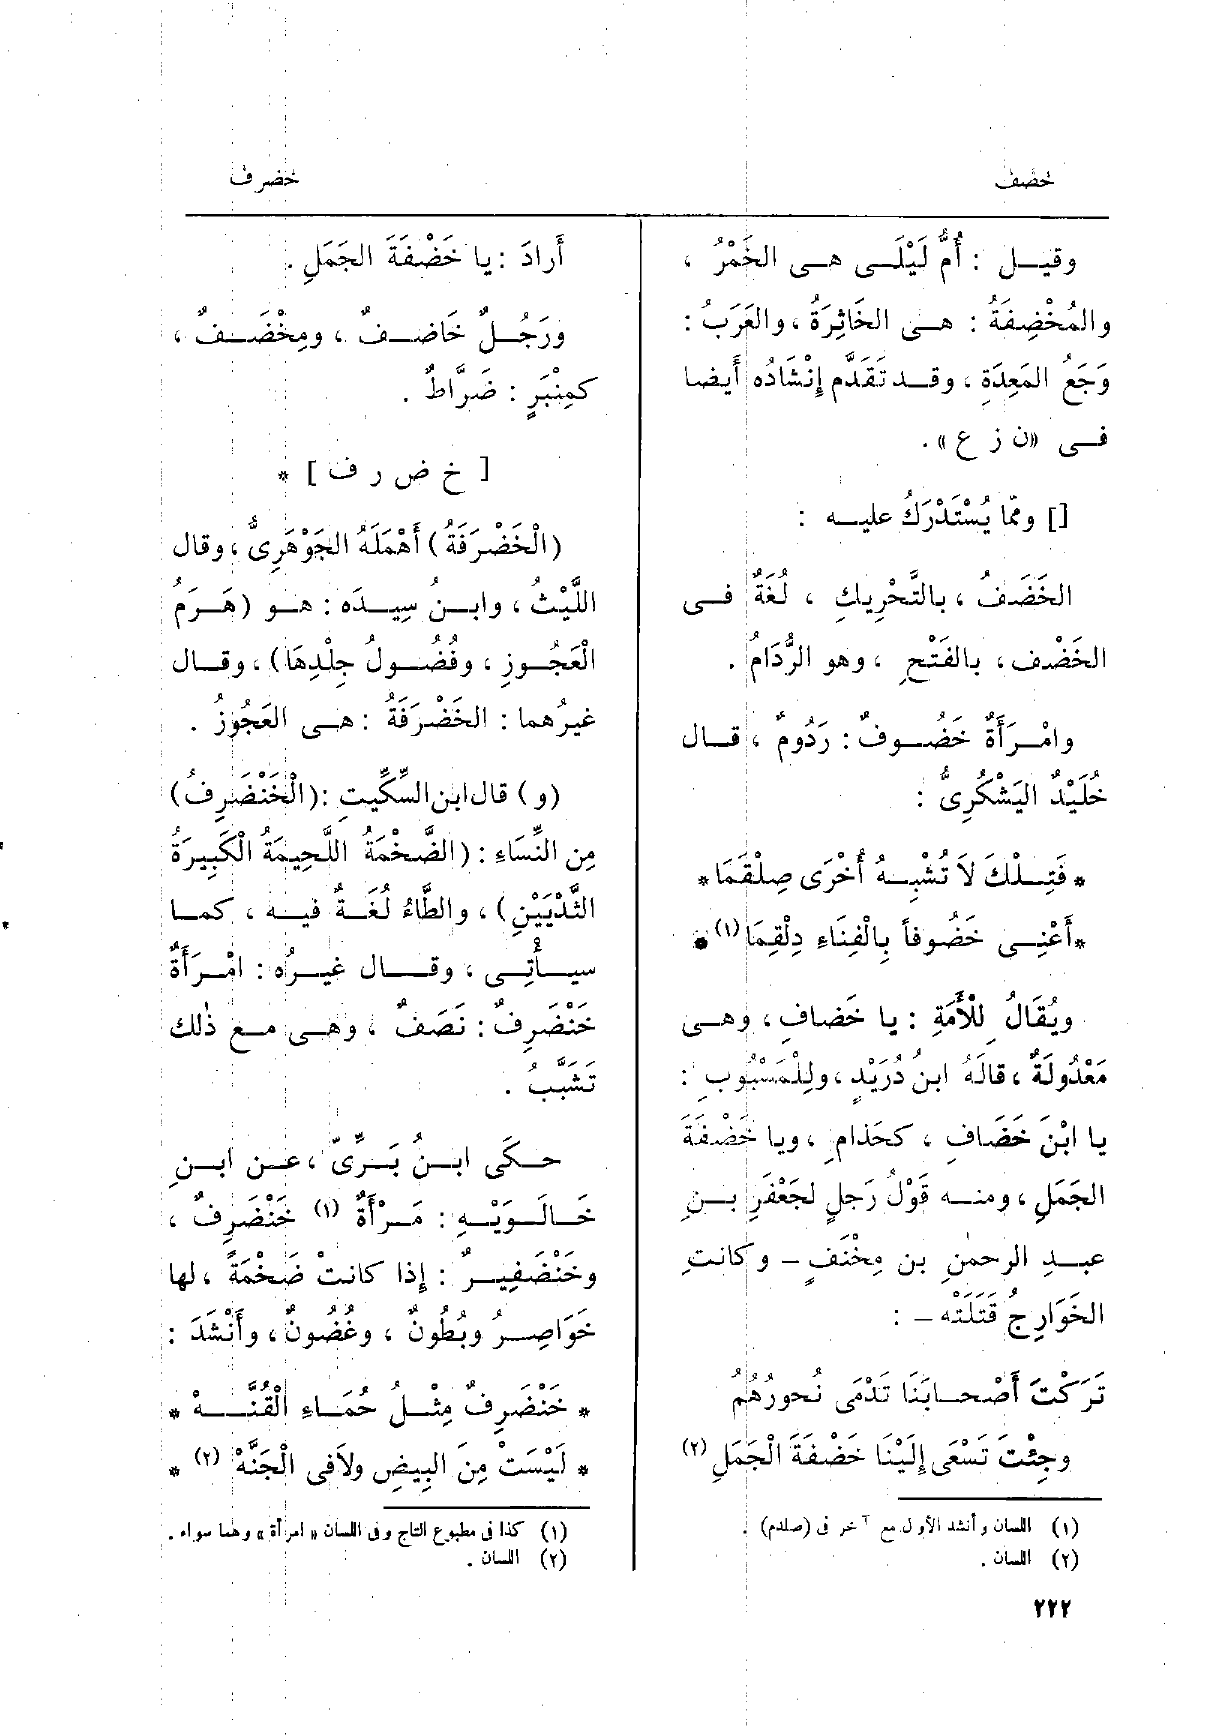 خضف
خضرف
وقيل : أُمُّ لَيْلَى هى الخَمْرُ ،
والمُخْضِفَةُ : هى الخاثِرَةُ ، والعَرَبُ :
وَجَعُ المَعِدَةِ ، وقد تَقَدَّم إِنْشَادُه أَيضا
فى «ن ز ع» .
[] وممّا يُسْتَدْرَكُ عليه :
الخَضَفُ ، بالتَّحْرِيكِ ، لُغَةٌ فى
الخَضْف ، بالفَتْحِ ، وهو الرُّدَامُ .
وامْرَأَةٌ خَضُوفٌ : رَدُومٌ ، قال
خُلَيْدٌ اليَشْكُرِىُّ :
* فَتِلْكَ لاَ تُشْبِهُ أُخْرَى صِلْقَمَا *
* أَعْنِى خَضُوفاً بِالْفِنَاءِ دِلْقِمَا (١) *
ويُقَالُ لِلْأَمَةِ : يا خَضافِ ، وهى
مَعْدُولَةٌ ، قالَهُ ابنُ دُرَيْدٍ ، ولِلْمَسْبُوبِ :
يا ابْنَ خَضَافِ ، كحَذامِ ، ويا خَضْفَةَ
الجَمَلِ ، ومنه قَوْلُ رَجلٍ لجَعْفَرِ بنِ
عبدِ الرحمٰنِ بن مِخْنَفٍ – وكانتِ
الخَوَارِجُ قَتَلَتْه – :
تَرَكْتَ أَصْحابَنَا تَدْمَى نُحورُهُمُ
وجِئْتَ تَسْعَى إِلَيْنَا خَضْفَةَ الْجَمَلِ (٢)
(١) اللسان وأنشد الأول مع آخر فى (صلدم) .
(٢) اللسان .
٢٢٢
أَرادَ : يا خَضْفَةَ الجَمَلِ .
ورَجُلٌ خَاضِفٌ ، ومِخْضَفٌ ،
كمِنْبَرٍ : ضَرَّاطٌ .
[ خ ض ر ف ] *
(الْخَضْرَفَةُ) أَهْمَلَهُ الجَوْهَرِىُّ ، وقال
اللَّيْثُ ، وابنُ سِيدَه : هو (هَرَمُ
الْعَجُوزِ ، وفُضُولُ جِلْدِهَا) ، وقال
غيرُهما : الخَضْرَفَةُ : هى العَجُوزُ .
(و) قال ابن السِّكِّيتِ : (الْخَنْضَرِفُ)
مِن النِّسَاءِ : (الضَّخْمَةُ اللَّحِيمَةُ الْكَبِيرَةُ
الثَّدْيَيْنِ) ، والطَّاءُ لُغَةٌ فيه ، كما
سيأْتِى ، وقال غيرُه : امْرَأَةٌ
خَنْضَرِفٌ : نَصَفٌ ، وهى مع ذٰلك
تَشَبَّبُ .
حكَى ابنُ بَرِّىّ ، عن ابنِ
خَالَوَيْهِ : مَرْأَةٌ (١) خَنْضَرِفٌ ،
وخَنْضَفِيرٌ : إِذا كانتْ ضَخْمَةً ، لها
خَوَاصِرُ وبُطُونٌ ، وغُضُونٌ ، وأَنْشَدَ :
* خَنْضَرِفٌ مِثْلُ حُمَاءِ الْقُنَّهْ *
* لَيْسَتْ مِنَ البِيضِ ولاَفى الْجَنَّهْ (٢) *
(١) كذا فى مطبوع التاج وفى اللسان « امرأة » وهما سواء .
(٢) اللسان .